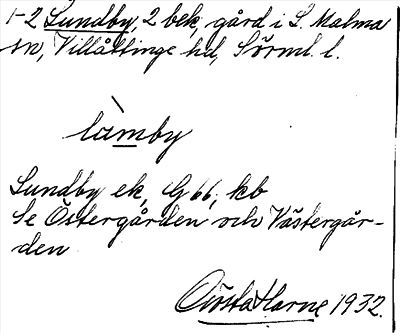 1-2 Lundby, 2 bek, gård i L. Malma
sn, Villåttinge hd, Sörml. l.
làmby
Lundby ek, G 66, kb
Se Östergården och Västergår-
den
Gösta Harne 1932.